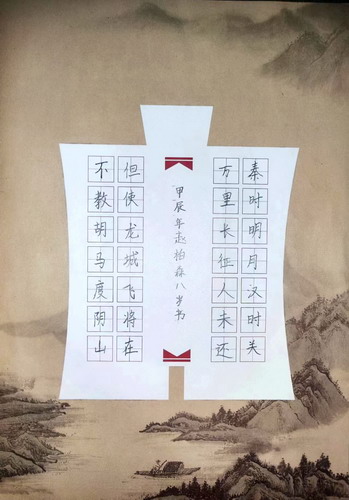 秦时明月汉时关
万里长征人未还
甲辰年赵柏森八岁书
但使龙城飞将在
不教胡马度阴山